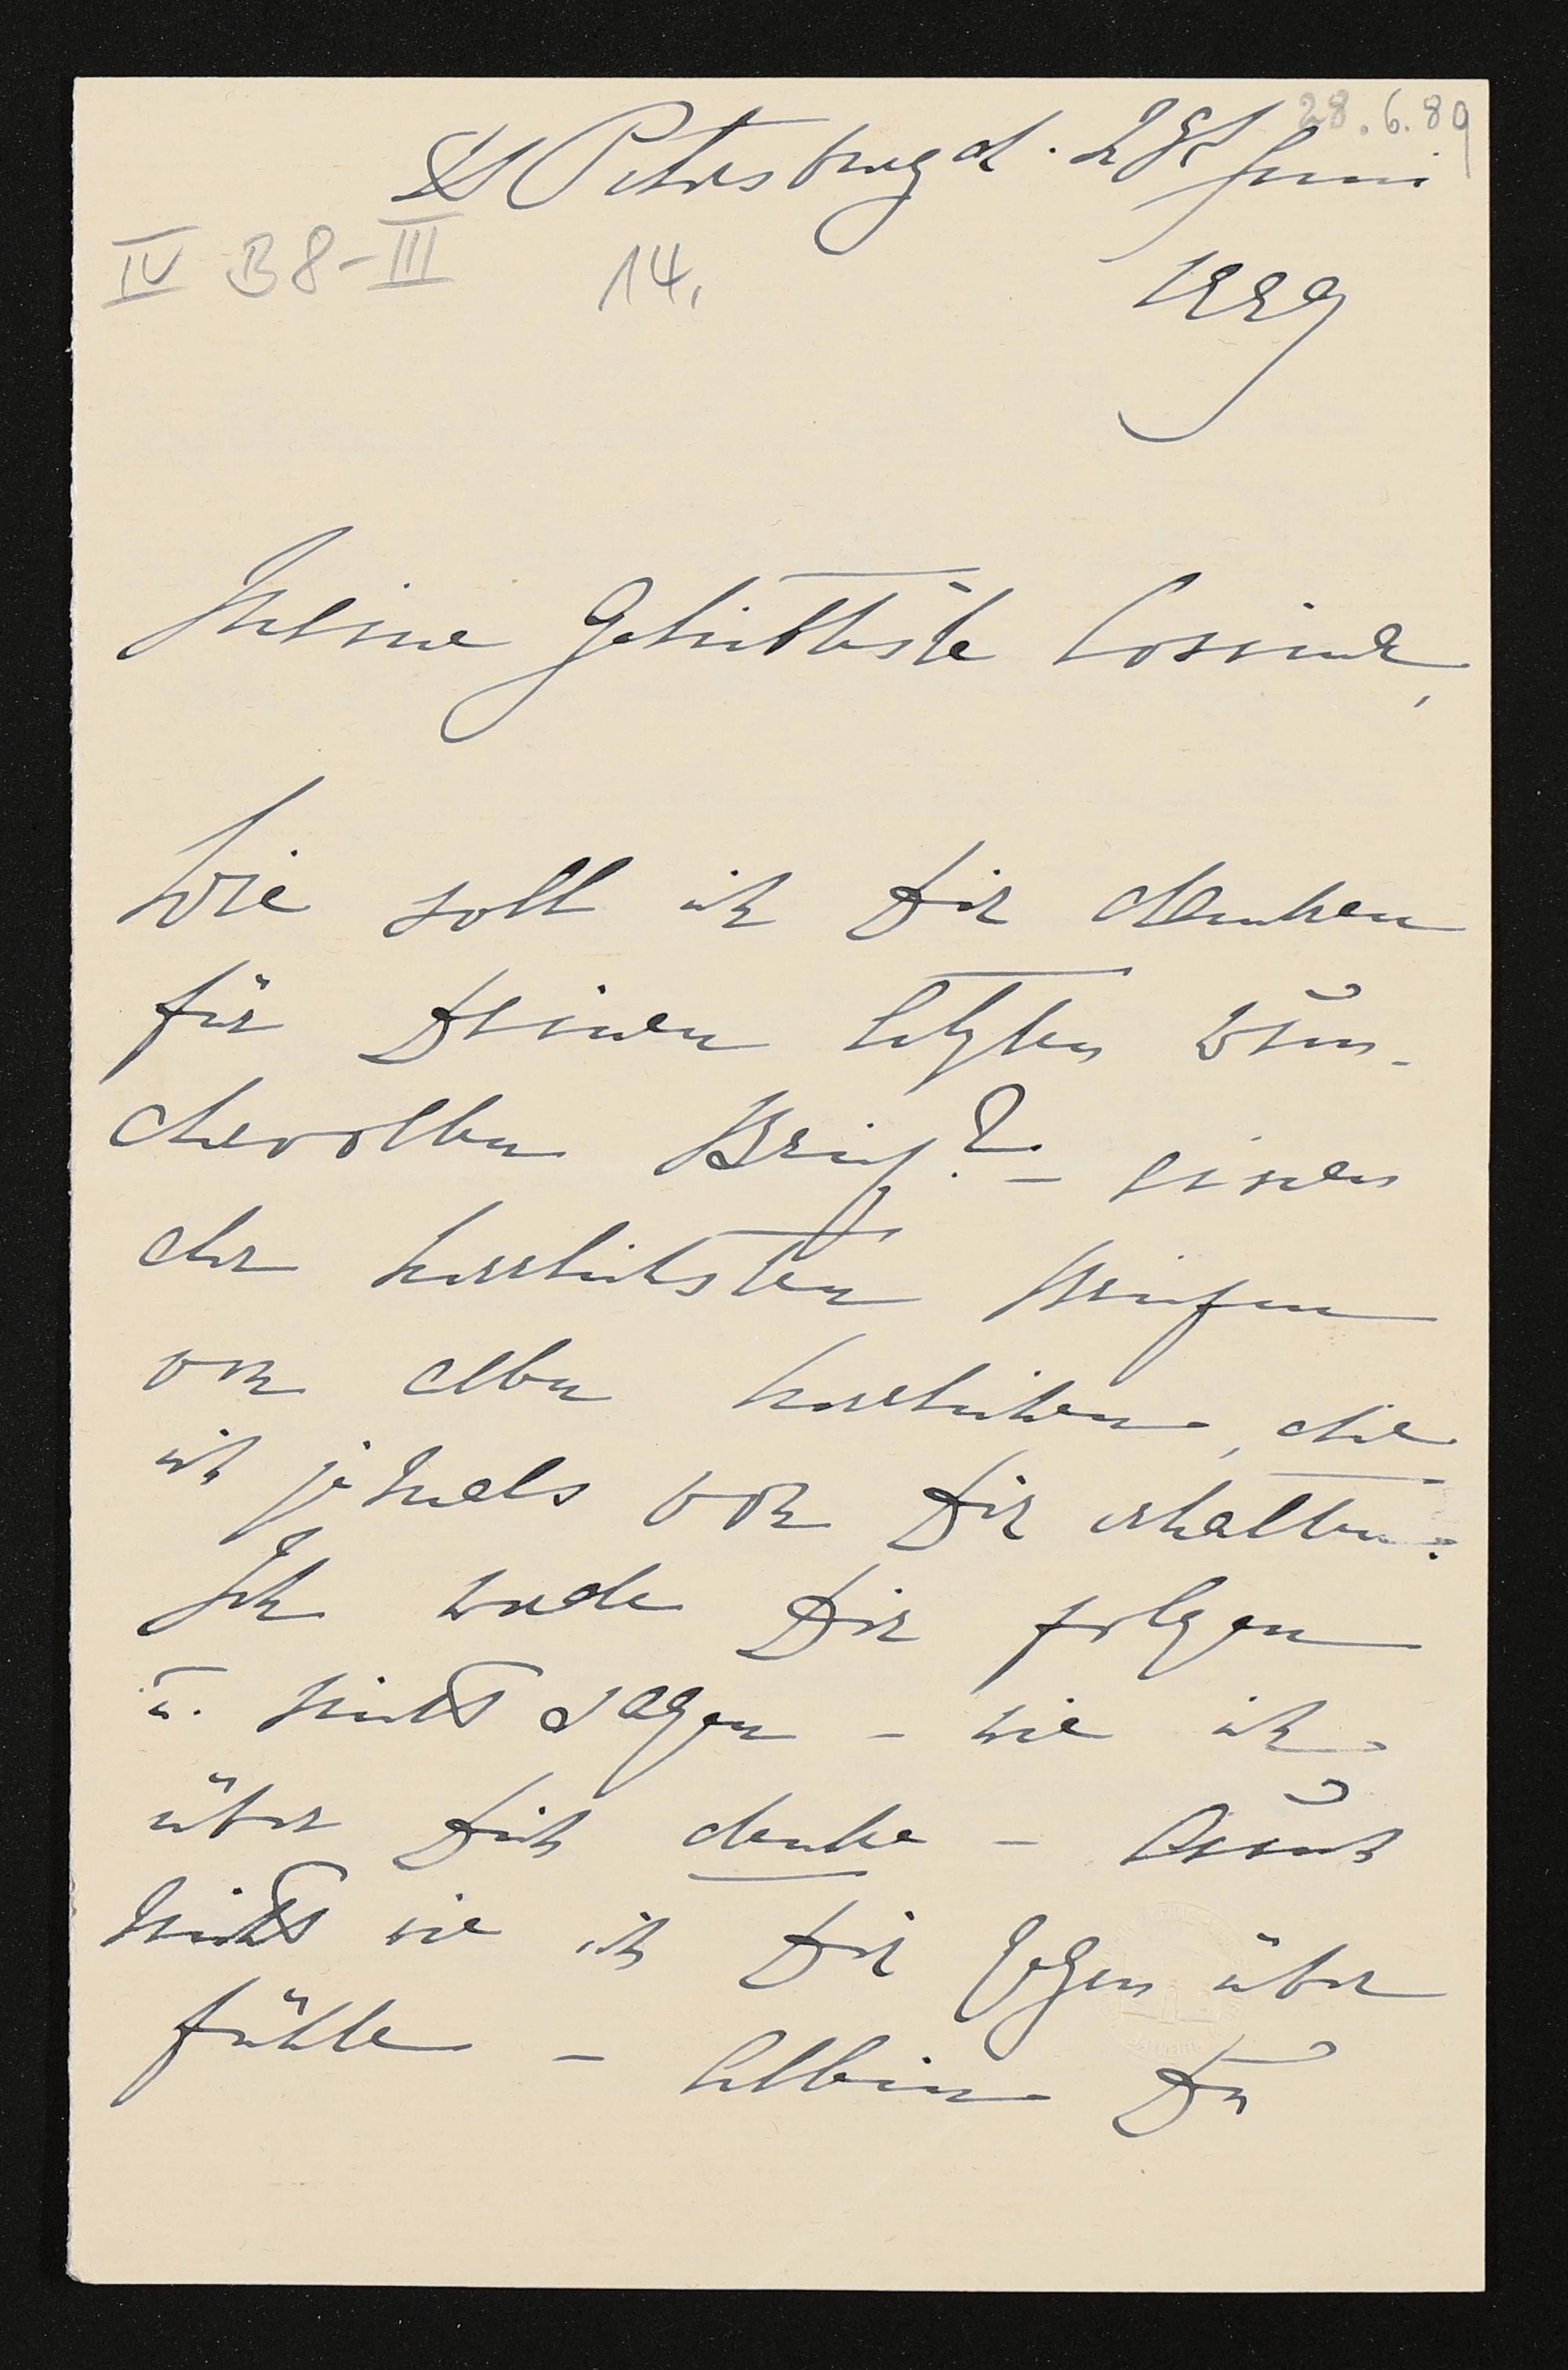 28.6.89
St Petersburg d. 28t Juni
IV B8-III 14.
1889
Meine Geliebteste Cosima,
Wie soll ich Dir danken
für Deinen letzten wun-
dervollen Brief? – einen
der herrlichsten Briefen
von allen herrlichen, die
ich jemals von Dir erhalten.
Ich werde Dir folgen
u. nichts sagen – wie ich
über Dich denke – auch
nichts wie ich Dir gegen über
fühle – allein Du